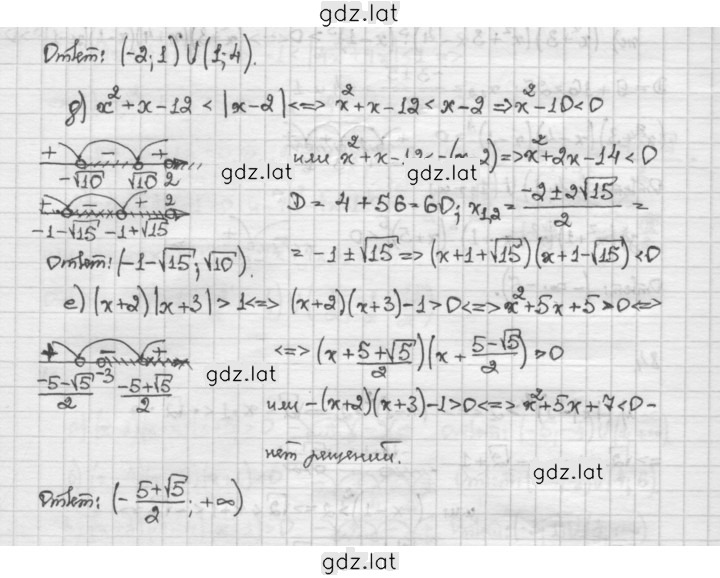 gdz.lat
Ответ: (-2; 1) ∪ (1; 4).
д) x² + x - 12 < |x - 2| <=> x² + x - 12 < x - 2 => x² - 10 < 0
+ - +
-√10 √10 2
или x² + x - 12 < -(x - 2) => x² + 2x - 14 < 0
gdz.lat
gdz.lat
+ - + 2
-1-√15 -1+√15
D = 4 + 56 = 60; x₁,₂ = (-2 ± 2√15)/2 =
= -1 ± √15 => (x + 1 + √15)(x + 1 - √15) < 0
Ответ: (-1-√15; √10).
е) (x+2)|x+3| > 1 <=> (x+2)(x+3) - 1 > 0 <=> x² + 5x + 5 > 0 <=>
+ - +
(-5-√5)/2 -3 (-5+√5)/2
<=> (x + (5+√5)/2)(x + (5-√5)/2) > 0
gdz.lat
или -(x+2)(x+3) - 1 > 0 <=> x² + 5x + 7 < 0 -
нет решений.
gdz.lat
Ответ: (-(5+√5)/2; +∞)
gdz.lat